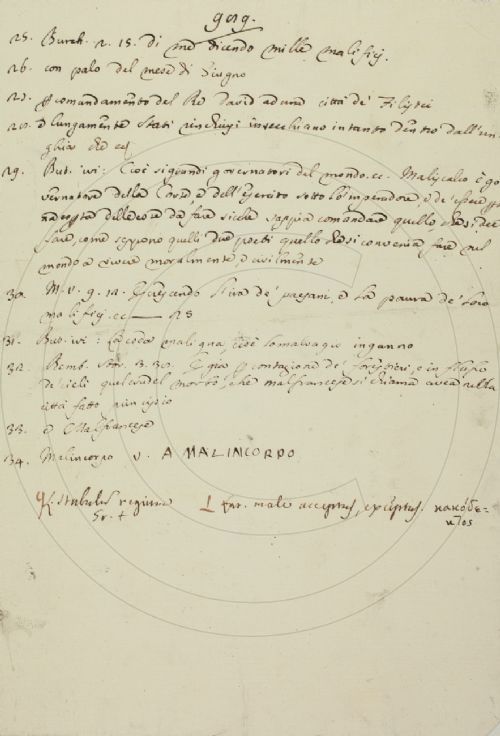 919.
25. Burch. 2. 18. di me dicendo mille malificj.
26. con palo del mese di Giugno
27. comandamento del Re David ad una città de' Filistei
28. e lungamente stati rinchiusi invecchiano intanto dentro dall'un-
ghia
29. But. ivi: Cioè si grandi governatori del mondo. ec. Maliscalco è go-
vernatore della Corte, e dell'esercito sotto lo'mperadore, e de'
delle cose da fare sicchè sappia comandare quello
fare, come seppono quelli due poeti quello si convenia fare nel
mondo a vivere moralmente, e civilmente
30. M. V. 9. Crescendo l'ira de' paesani, e la paura de' loro
malificj. ec — 25
31. But. ivi: La coda maligna, cioè lo malvagio inganno
32. Bemb. Stor. 3. 30. E già contagione de' forestieri, e influsso
de' cieli quel morbo, che malfrancese si chiama avea nella
città fatto principio
33. e Malfrancese
34. Malincorpo v. A MALINCORPO
stabulis regiun ⊥ fur. male acceptus, exceptus. κακόδε-
Gr. + κτος